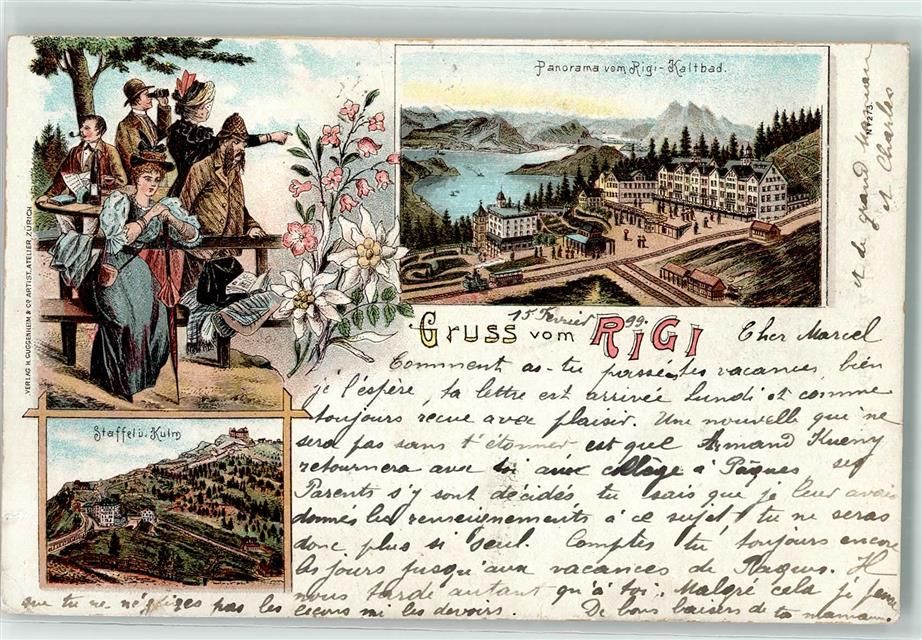 Panorama vom Rigi-Kaltbad.
Nº 273.
VERLAG H. GUGGENHEIM & Cº ARTIST. ATELIER, ZÜRICH
Gruss vom RIGI
Staffel u. Kulm
15 Fevrier 99.
Cher Marcel
Comment as-tu passé tes vacances, bien
je l'espère, ta lettre est arrivée Lundi et comme
toujours recue avec plaisir. Une nouvelle que ne
sera pas sans t'étonner est que Armand Kueny
retournera avec toi aux collège à Pâques, ses
Parents s'y sont décidés, tu sais que je leur avais
donnés les renseignements à ce sujet, tu ne seras
donc plus si seul. Comptes tu toujours encore
les jours jusqu'aux vacances de Paques. Il
nous tarde autant qu'à toi. Malgré cela je pense
que tu ne négliges pas les leçons ni les devoirs. De bons baisers de ta maman
et de grand maman
et Charles